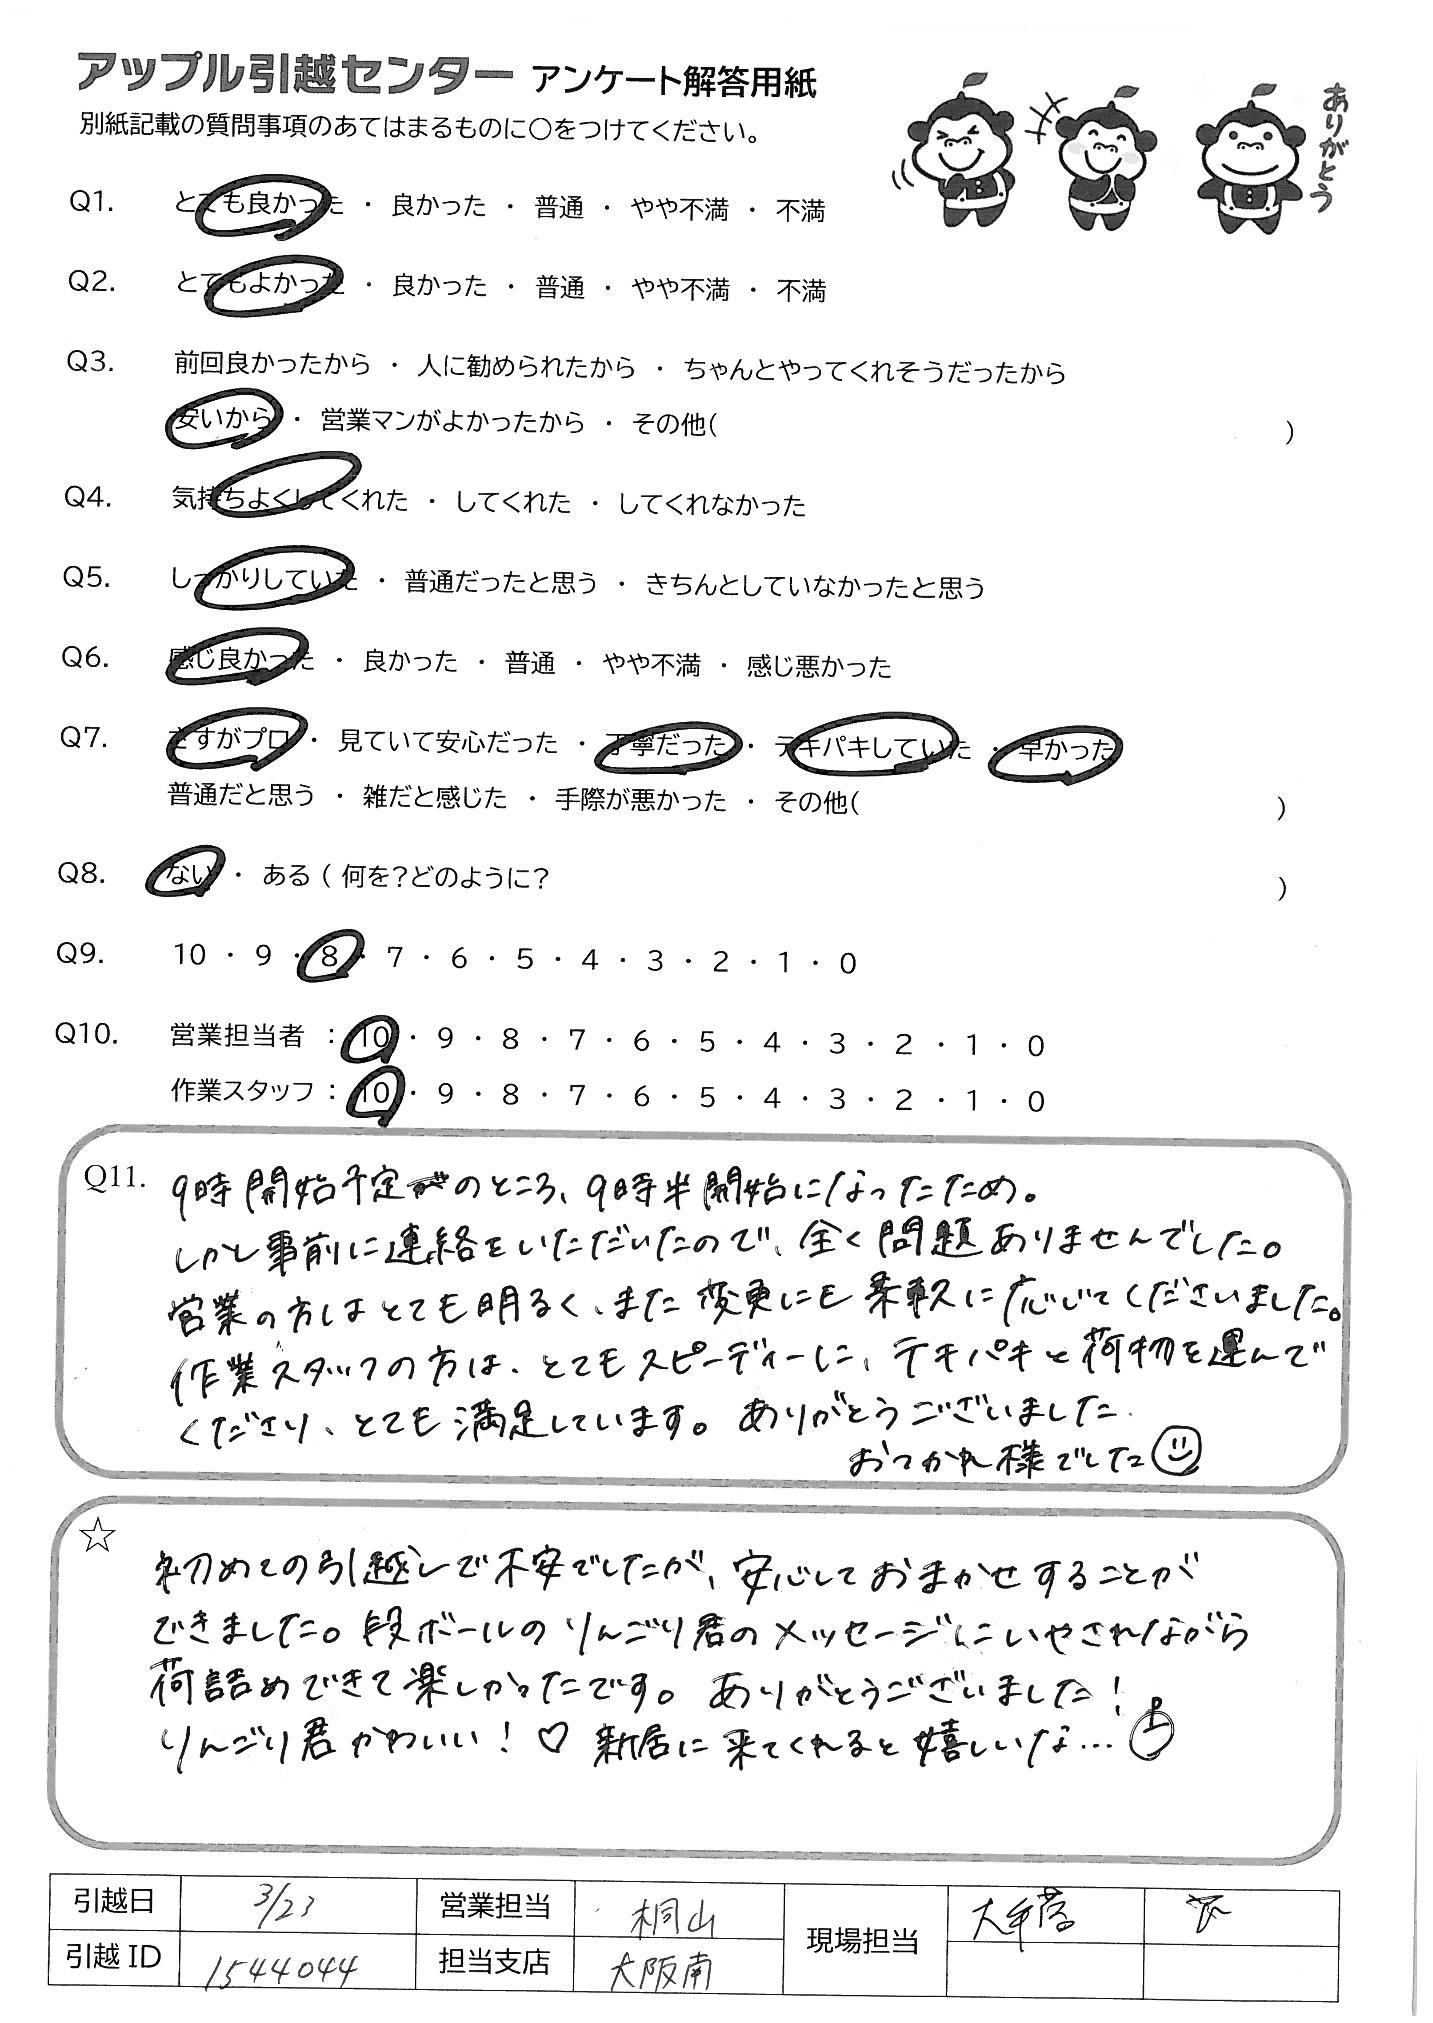 アップル引越センター アンケート解答用紙
別紙記載の質問事項のあてはまるものに○をつけてください。
ありがとう
Q1. とても良かった ・ 良かった ・ 普通 ・ やや不満 ・ 不満
Q2. とてもよかった ・ 良かった ・ 普通 ・ やや不満 ・ 不満
Q3. 前回良かったから ・ 人に勧められたから ・ ちゃんとやってくれそうだったから
安いから ・ 営業マンがよかったから ・ その他( )
Q4. 気持ちよくしてくれた ・ してくれた ・ してくれなかった
Q5. しっかりしていた ・ 普通だったと思う ・ きちんとしていなかったと思う
Q6. 感じ良かった ・ 良かった ・ 普通 ・ やや不満 ・ 感じ悪かった
Q7. さすがプロ ・ 見ていて安心だった ・ 丁寧だった ・ テキパキしていた ・ 早かった
普通だと思う ・ 雑だと感じた ・ 手際が悪かった ・ その他( )
Q8. ない ・ ある ( 何を?どのように? )
Q9. 10 ・ 9 ・ 8 ・ 7 ・ 6 ・ 5 ・ 4 ・ 3 ・ 2 ・ 1 ・ 0
Q10. 営業担当者 : 10 ・ 9 ・ 8 ・ 7 ・ 6 ・ 5 ・ 4 ・ 3 ・ 2 ・ 1 ・ 0
作業スタッフ : 10 ・ 9 ・ 8 ・ 7 ・ 6 ・ 5 ・ 4 ・ 3 ・ 2 ・ 1 ・ 0
Q11. 9時開始予定のところ、9時半開始になったため。
しかし事前に連絡をいただいたので、全く問題ありませんでした。
営業の方はとても明るく、また変更にも柔軟に応じてくださいました。
作業スタッフの方は、とてもスピーディーに、テキパキと荷物を運んで
くださり、とても満足しています。ありがとうございました
おつかれ様でした
☆
初めての引越しで不安でしたが、安心しておまかせすることが
できました。段ボールのりんごり君のメッセージにいやされながら
荷詰めできて楽しかったです。ありがとうございました!
りんごり君かわいい!♡ 新居に来てくれると嬉しいな…
引越日 3/23 営業担当 桐山 現場担当
引越ID 1544044 担当支店 大阪南